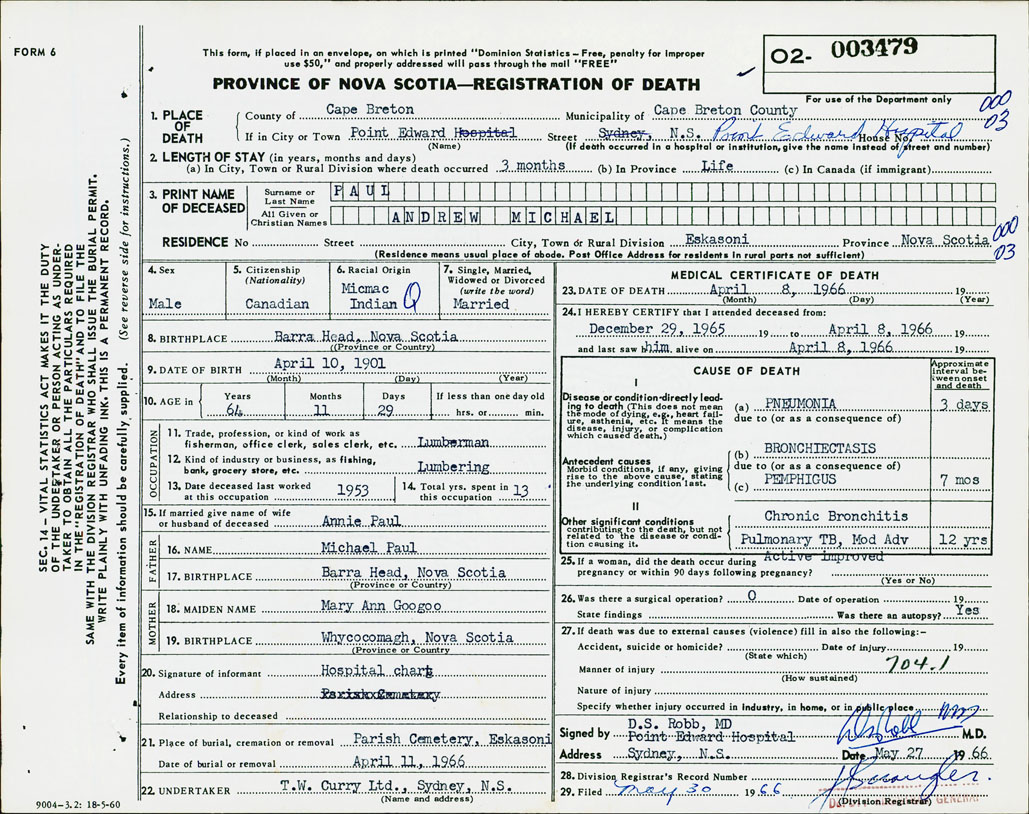 FORM 6
This form, if placed in an envelope, on which is printed "Dominion Statistics – Free, penalty for improper
use $50," and properly addressed will pass through the mail "FREE"
O2- 003479
For use of the Department only
PROVINCE OF NOVA SCOTIA—REGISTRATION OF DEATH
000
03
1. PLACE OF DEATH
County of Cape Breton Municipality of Cape Breton County
If in City or Town Point Edward Hospital Street Sydney, N.S. Point Edward Hospital House No.
(Name) (If death occurred in a hospital or institution, give the name instead of street and number)
2. LENGTH OF STAY (in years, months and days)
(a) In City, Town or Rural Division where death occurred 3 months (b) In Province Life (c) In Canada (if immigrant)
3. PRINT NAME OF DECEASED
Surname or Last Name PAUL
All Given or Christian Names ANDREW MICHAEL
RESIDENCE No Street City, Town or Rural Division Eskasoni Province Nova Scotia
000
03
(Residence means usual place of abode. Post Office Address for residents in rural parts not sufficient)
4. Sex
Male
5. Citizenship
(Nationality)
Canadian
6. Racial Origin
Micmac
Indian
7. Single, Married,
Widowed or Divorced
(write the word)
Married
8. BIRTHPLACE Barra Head, Nova Scotia
(Province or Country)
9. DATE OF BIRTH April 10, 1901
(Month) (Day) (Year)
10. AGE in Years Months Days If less than one day old
64 11 29 hrs. or min.
OCCUPATION
11. Trade, profession, or kind of work as
fisherman, office clerk, sales clerk, etc. Lumberman
12. Kind of industry or business, as fishing,
bank, grocery store, etc. Lumbering
13. Date deceased last worked
at this occupation 1953
14. Total yrs. spent in
this occupation 13
15. If married give name of wife
or husband of deceased Annie Paul
FATHER
16. NAME Michael Paul
17. BIRTHPLACE Barra Head, Nova Scotia
(Province or Country)
MOTHER
18. MAIDEN NAME Mary Ann Googoo
19. BIRTHPLACE Whycocomagh, Nova Scotia
(Province or Country)
20. Signature of informant Hospital chart
Address Parish Cemetary
Relationship to deceased
21. Place of burial, cremation or removal Parish Cemetery, Eskasoni
Date of burial or removal April 11, 1966
22. UNDERTAKER T.W. Curry Ltd., Sydney, N.S.
(Name and address)
MEDICAL CERTIFICATE OF DEATH
23. DATE OF DEATH April 8, 1966 19
(Month) (Day) (Year)
24. I HEREBY CERTIFY that I attended deceased from:
December 29, 1965 19 to April 8, 1966 19
and last saw him alive on April 8, 1966 19
CAUSE OF DEATH
Approximate
interval be-
tween onset
and death
I
Disease or condition directly lead-
ing to death (This does not mean
the mode of dying, e.g., heart fail-
ure, asthenia, etc. It means the
disease, injury, or complication
which caused death.)
(a) PNEUMONIA 3 days
due to (or as a consequence of)
Antecedent causes
Morbid conditions, if any, giving
rise to the above cause, stating
the underlying condition last.
(b) BRONCHIECTASIS
due to (or as a consequence of)
(c) PEMPHIGUS 7 mos
II
Other significant conditions
contributing to the death, but not
related to the disease or condi-
tion causing it.
Chronic Bronchitis
Pulmonary TB, Mod Adv 12 yrs
Active improved
25. If a woman, did the death occur during
pregnancy or within 90 days following pregnancy?
(Yes or No)
26. Was there a surgical operation? O Date of operation 19
State findings Was there an autopsy? Yes
27. If death was due to external causes (violence) fill in also the following:–
Accident, suicide or homicide? Date of injury 19
(State which)
704.1
Manner of injury
(How sustained)
Nature of injury
Specify whether injury occurred in industry, in home, or in public place
Signed by D.S. Robb, MD
Point Edward Hospital
DS Robb MD M.D.
Address Sydney, N.S. Date May 27 1966
28. Division Registrar's Record Number
29. Filed May 30 1966
(Division Registrar)
GENERAL
SEC. 14 – VITAL STATISTICS ACT MAKES IT THE DUTY
OF THE UNDERTAKER OR PERSON ACTING AS UNDER-
TAKER TO OBTAIN ALL THE PARTICULARS REQUIRED
IN THE "REGISTRATION OF DEATH" AND TO FILE THE
SAME WITH THE DIVISION REGISTRAR WHO SHALL ISSUE THE BURIAL PERMIT.
WRITE PLAINLY WITH UNFADING INK. THIS IS A PERMANENT RECORD.
Every item of information should be carefully supplied. (See reverse side for instructions.)
9004-3.2: 18-5-60